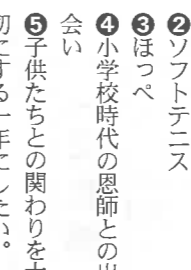 ❷ソフトテニス
❸ほっぺ
❹小学校時代の恩師との出
会い
❺子供たちとの関わりを大
切にする一年にしたい。